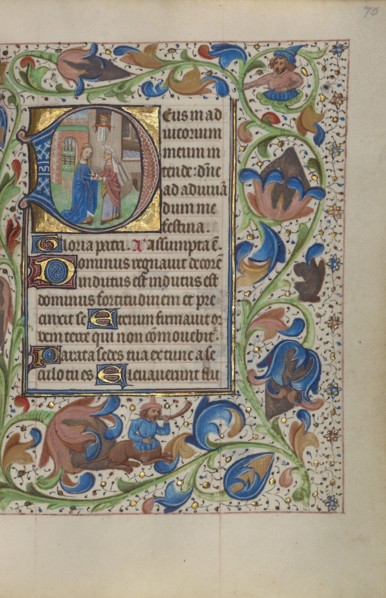 70
Deus in ad
iutorium
meum in
tende: dn̄e
ad adiuuā
dum me
festina.
Gloria patri. A assumpta ē
Dominus regnauit decorē
indutus est indutus est
dominus fortitudinem et pre
cinxit se Etenim firmauit or
bem terre qui non cōmouebit᷑
Parata sedes tua ex tunc a se
culo tu es Eleuauerunt flu